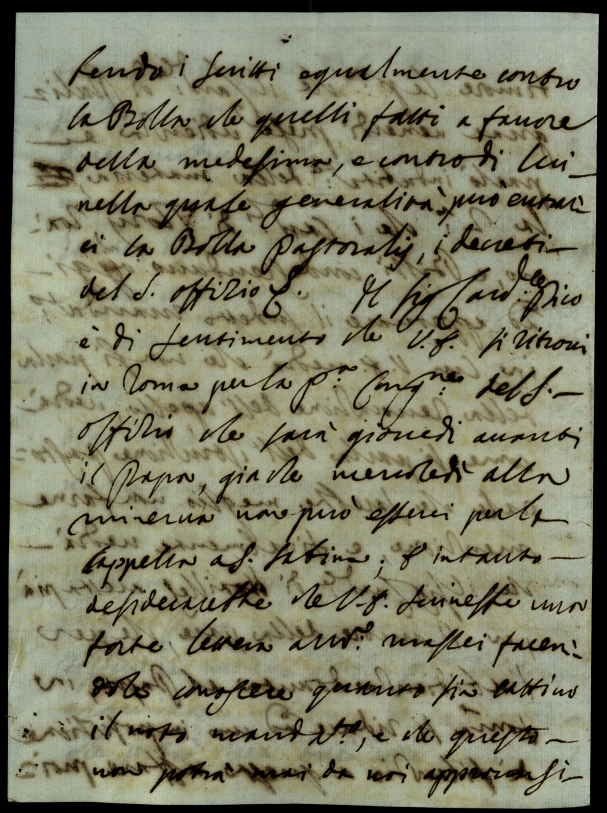 tendo i scritti egualmente contro
la Bolla che quelli fatti a favore
della medesima, e contro di lui
nella quale generalità può entrar
ci la Bolla Pastoralis, i decreti
del S. Offizio &. Il Sig. Card.le Pico
è di sentimento che V.E. si ritrovi
in Roma per la p.a Cong.ne del S.
Offizio che sarà giovedì avanti
il Papa, giache mercoledì alla
Minerva non può esserci per la
Cappella a S. Sabina; & intanto
desiderarebbe che V.E. scrivesse una
forte lettera a Massei facen-
dole conoscere quanto sia cattivo
il noto mand, e che questo
non potrà mai da noi approvarsi